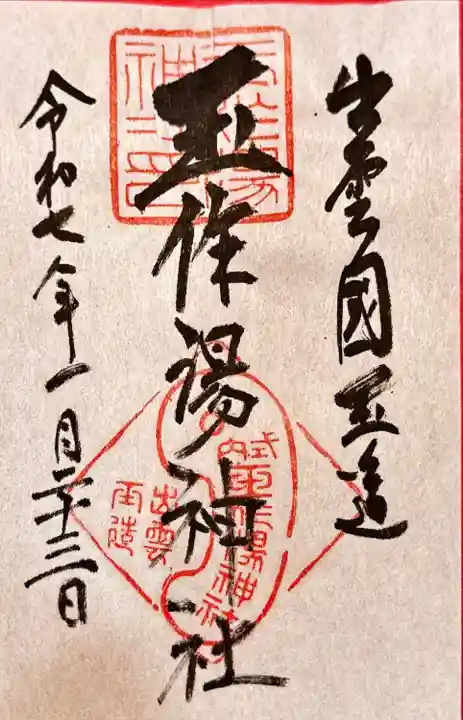 出雲國玉造
玉作湯神社
令和七年一月二十三日
式内玉作湯神社
出雲
玉造